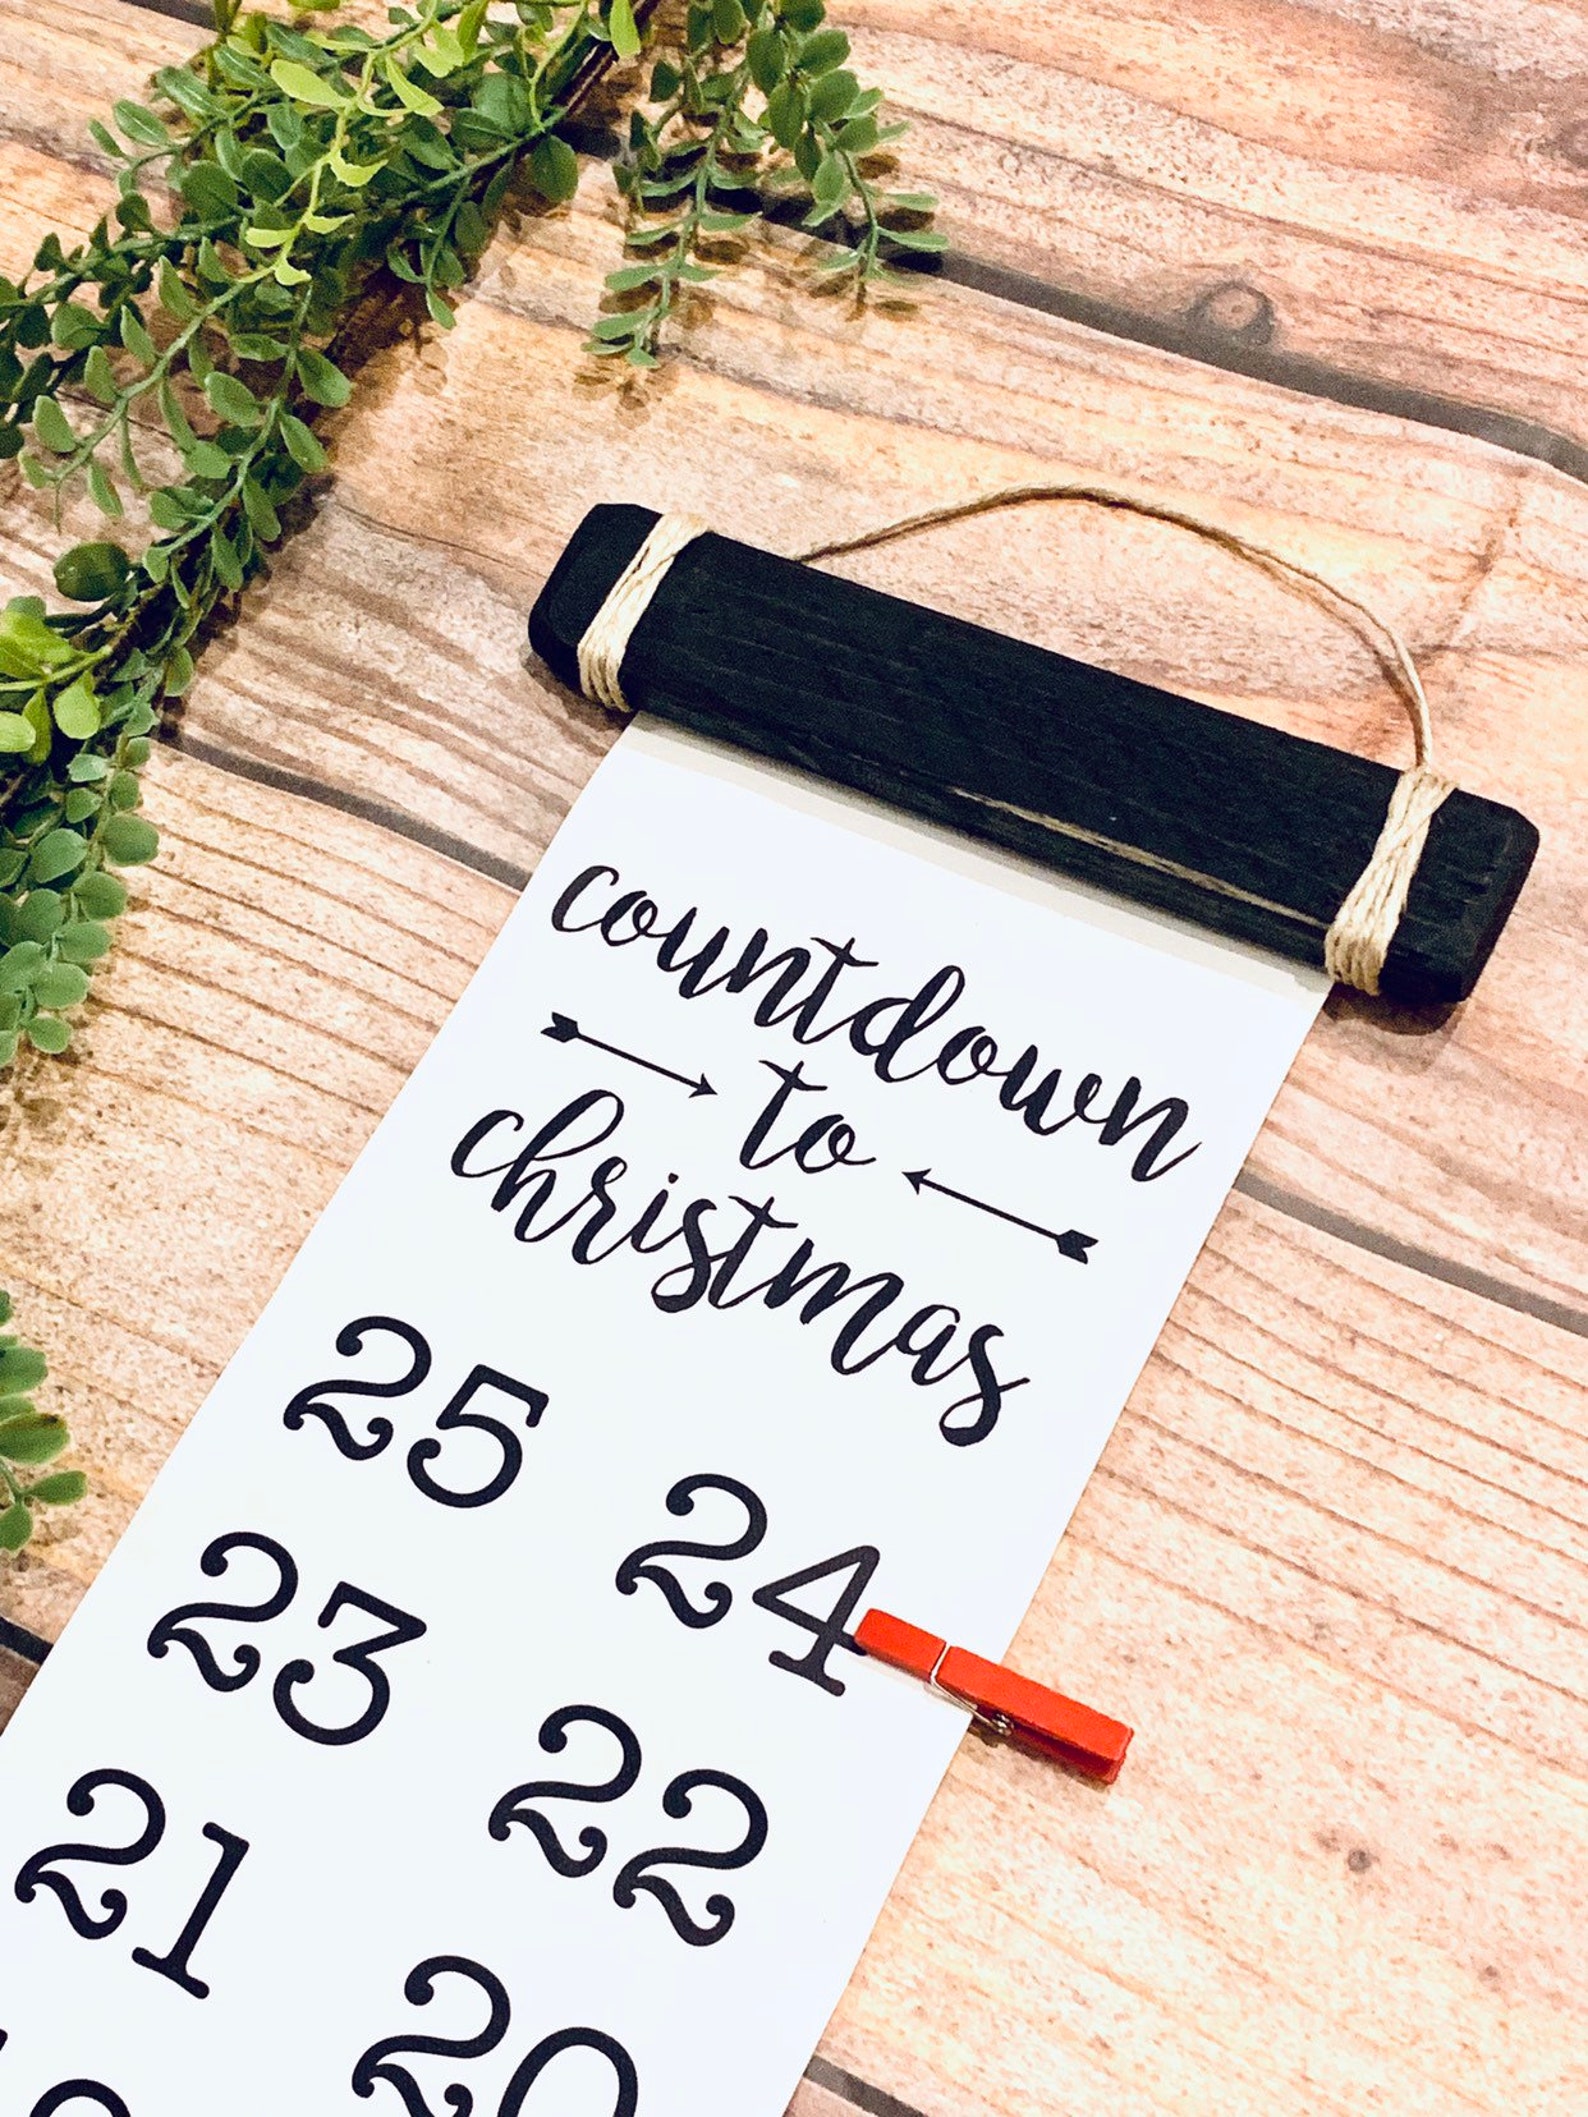 countdown
to
christmas
25 24
23 22
21 20